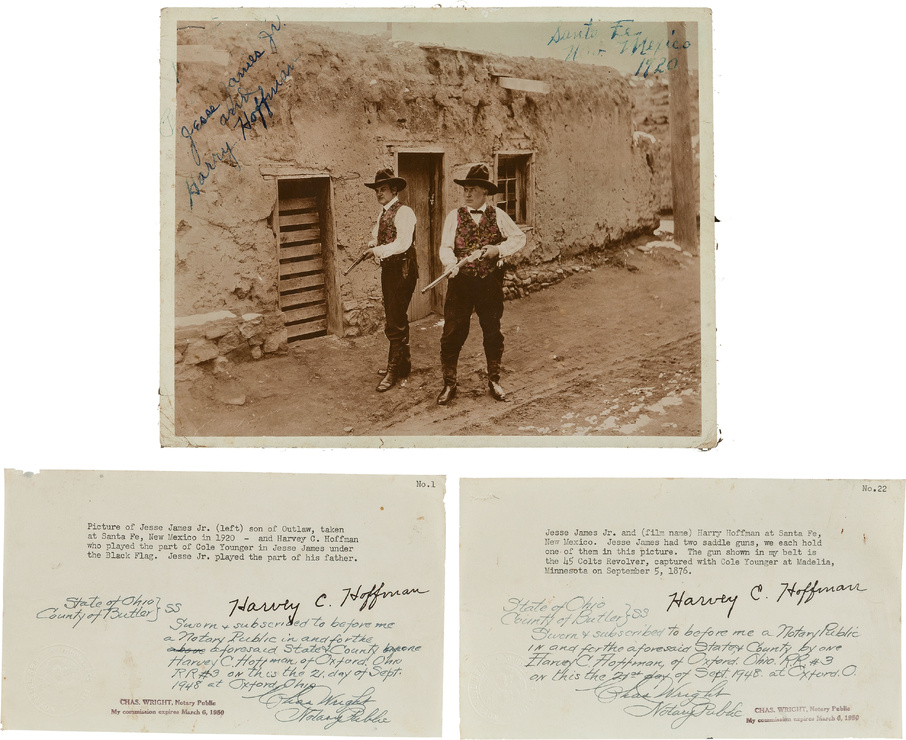 Jesse James Jr.
and
Harry Hoffman
Santa Fe,
New Mexico
1920
No.1
Picture of Jesse James Jr. (left) son of Outlaw, taken
at Santa Fe, New Mexico in 1920 - and Harvey C. Hoffman
who played the part of Cole Younger in Jesse James under
the Black Flag. Jesse Jr. played the part of his father.
State of Ohio } SS
County of Butler
Harvey C. Hoffman
Sworn & subscribed to before me
a Notary Public in and for the
above aforesaid State & County by one
Harvey C. Hoffman, of Oxford, Ohio
RR#3 on this the 21, day of Sept.
1948 at Oxford, Ohio
Chas Wright
Notary Public
CHAS. WRIGHT, Notary Public
My commission expires March 6, 1950
No.22
Jesse James Jr. and (film name) Harry Hoffman at Santa Fe,
New Mexico. Jesse James had two saddle guns, we each hold
one of them in this picture. The gun shown in my belt is
the 45 Colts Revolver, captured with Cole Younger at Madelia,
Minnesota on September 5, 1876.
Harvey C. Hoffman
State of Ohio } SS
County of Butler
Sworn & subscribed to before me a Notary Public
in and for the aforesaid State & County by one
Harvey C. Hoffman, of Oxford, Ohio, RR.#3
on this the 21st day of Sept. 1948. at Oxford. O.
Chas Wright
Notary Public
CHAS. WRIGHT, Notary Public
My commission expires March 6, 1950